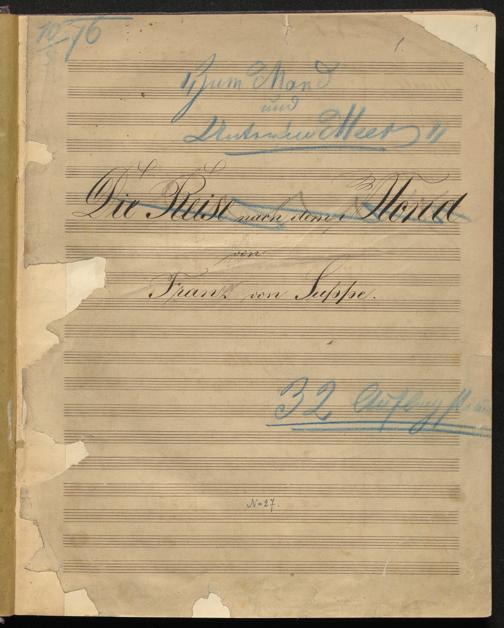 10/5 76
1.
"Zum Mond
und
Unterm Meer"
Die Reise nach dem Mond
von
Franz von Suppe.
32
No 27.